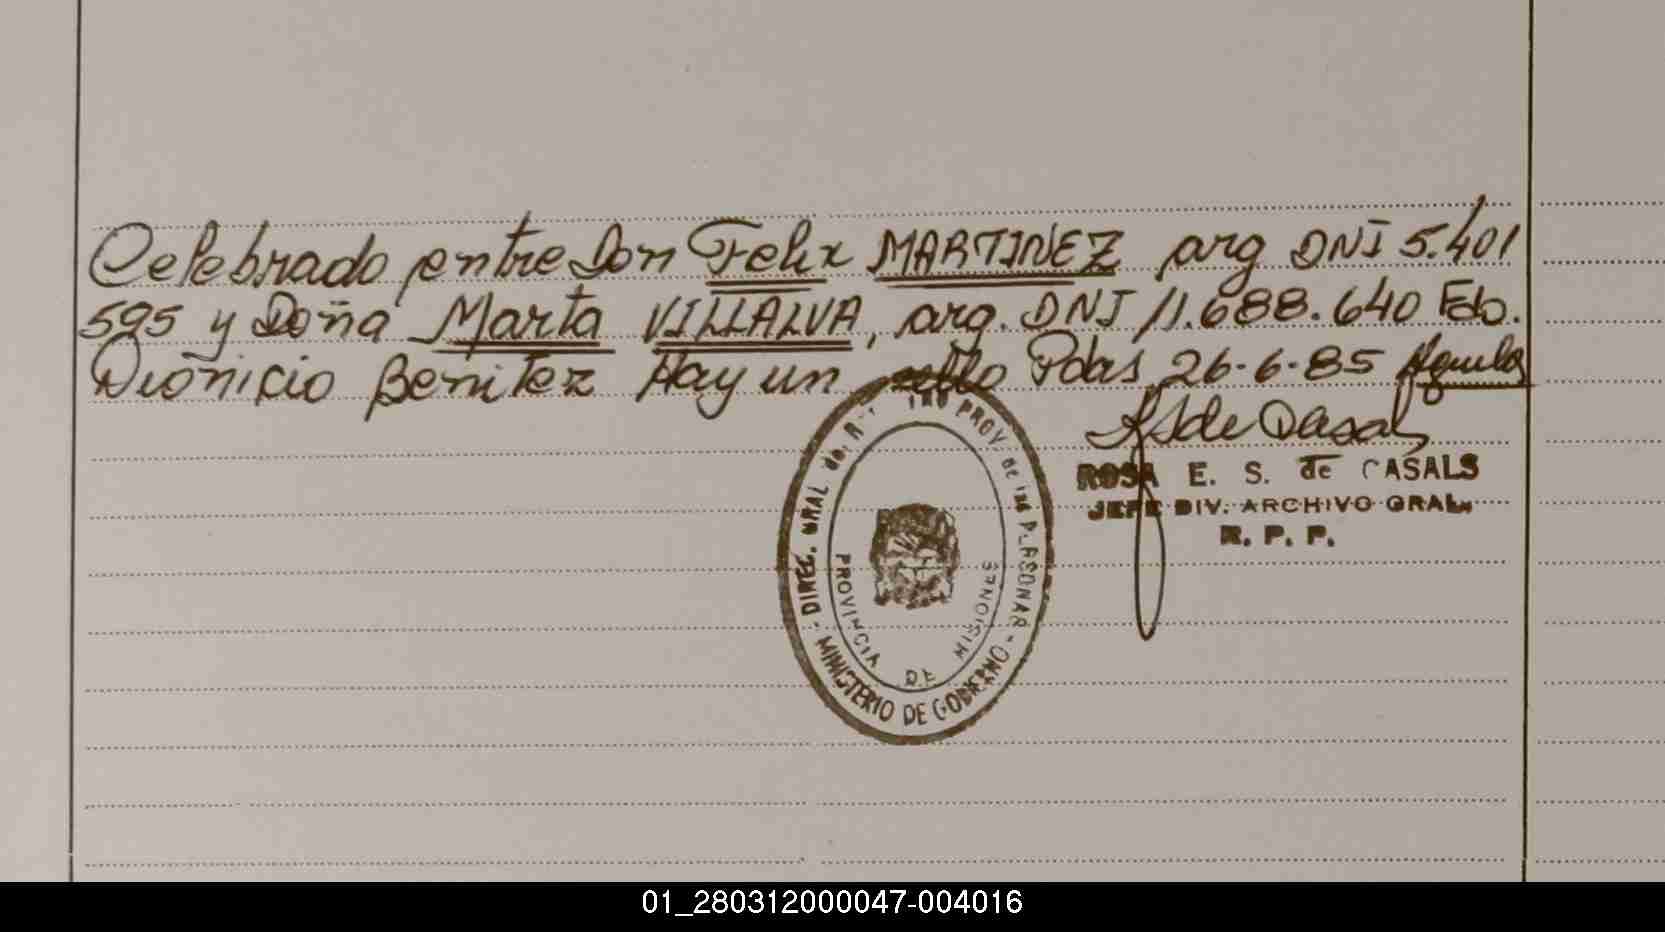 Celebrado entre Don Felix MARTINEZ arg DNI 5.401
595 y Doña Marta VILLALVA, arg. DNI 11.688.640 Fdo.
Dionicio Benitez Hay un sello Pdas 26-6-85
ROSA E. S. de CASALS
JEFE DIV. ARCHIVO GRAL.
R. P. P.
DIREC. GRAL del PROV. de las PERSONAS
PROVINCIA DE MISIONES
- MINISTERIO DE GOBIERNO -
01_280312000047-004016